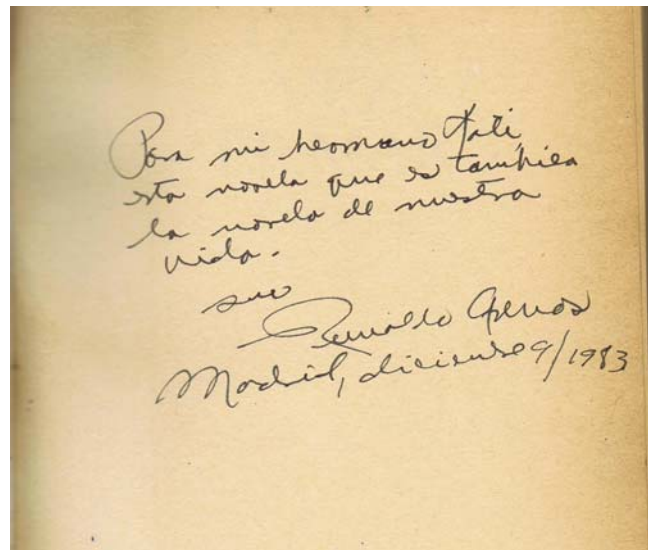 Para mi hermano
esta novela que es también
la novela de nuestra
vida.
suo
Reinaldo Arenas
Madrid, diciembre 9/1983